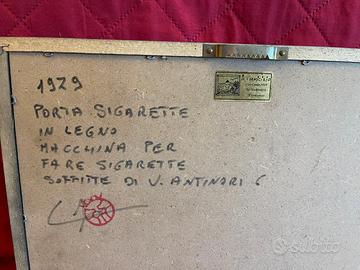 1929
PORTA SIGARETTE
IN LEGNO
MACCHINA PER
FARE SIGARETTE
SOFFITTE DI V. ANTINORI 6
subito